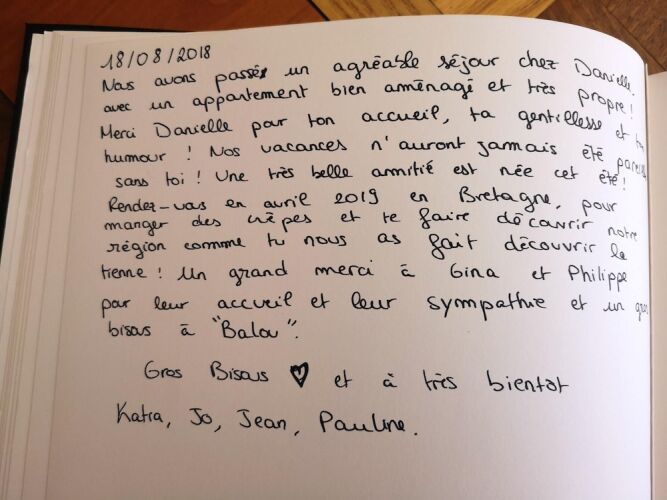 18/08/2018
Nous avons passés un agréable séjour chez Danielle.
avec un appartement bien aménagé et très propre !
Merci Danielle pour ton accueil, ta gentillesse et ton
humour ! Nos vacances n'auront jamais été pareilles
sans toi ! Une très belle amitié est née cet été !
Rendez-vous en avril 2019 en Bretagne, pour
manger des crêpes et te faire découvrir notre
région comme tu nous as fait découvrir la
tienne ! Un grand merci à Gina et Philippe
pour leur accueil et leur sympathie et un gros
bisous à "Balou".
Gros Bisous ♥ et à très bientôt
Katia, Jo, Jean, Pauline.